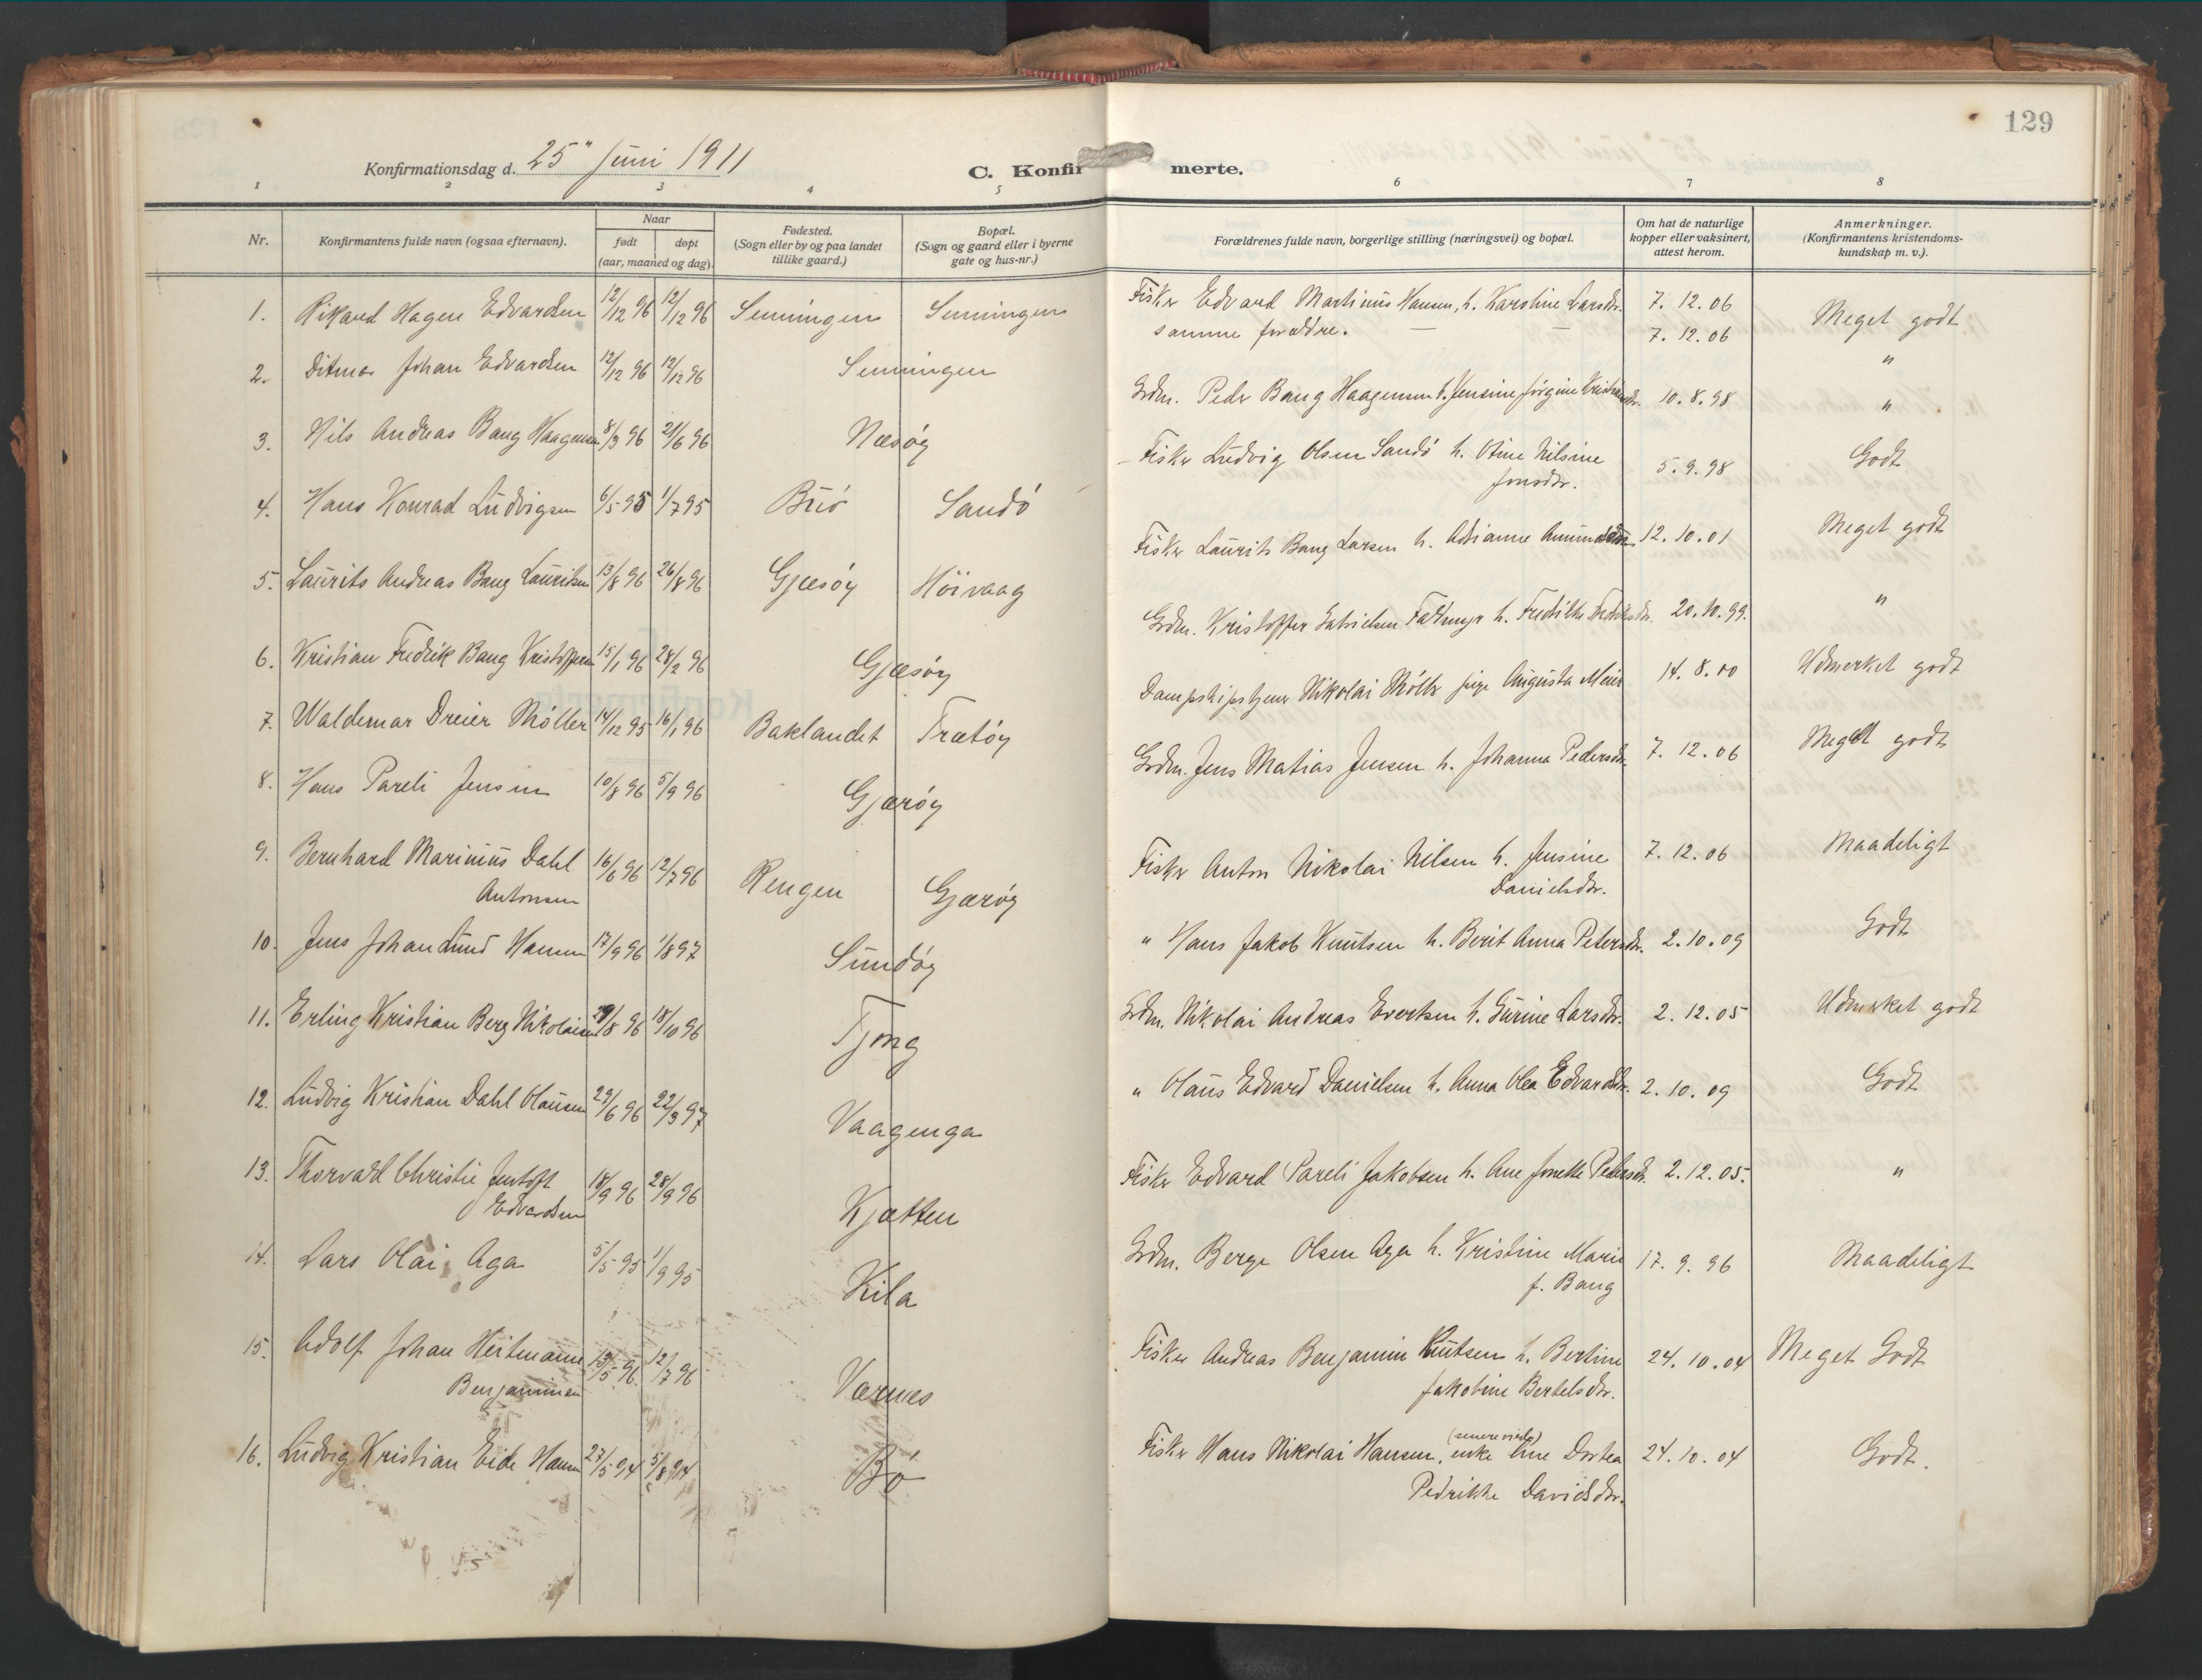 129
Konfirmationsdag d. 25" Juni 1911
C. Konfirmerte.
1 2 3 4 5 6 7 8
Nr.
Konfirmantens fulde navn (ogsaa efternavn).
Naar
født døpt
(aar, maaned og dag).
Fødested.
(Sogn eller by og paa landet
tillike gaard.)
Bopæl.
(Sogn og gaard eller i byerne
gate og hus-nr.)
Forældrenes fulde navn, borgerlige stilling (næringsvei) og bopæl.
Om hat de naturlige
kopper eller vaksinert,
attest herom.
Anmerkninger.
(Konfirmantens kristendoms-
kundskap m. v.).
1. Rikard Hagen Edvardsen 12/12 96 12/12 96 Senningen Senningen Fisker Edvard Martinus Hansen, h. Karoline Larsdtr. 7. 12. 06 Meget godt
2. Ditmar Johan Edvardsen 12/12 96 12/12 96 Senningen samme forældre. — — 7. 12. 06 "
3. Nils Andreas Bang Haagensen 8/3 96 21/6 96 Næsøy Grdm. Peder Bang Haagensen h. Jensine Jørgine 10. 8. 98 "
4. Hans Konrad Ludvigsen 6/5 95 1/7 95 Buö Sandö Fisker Ludvig Olsen Sandö h. Otine Nilsine
Jonsdtr. 5. 9. 98 Godt
5. Laurits Andreas Bang Lauritsen 13/8 96 26/8 96 Gjæsöy Höivaag Fisker Laurits Bang Larsen h. Adrianne 12. 10. 01 Meget godt
6. Kristian Fredrik Bang Kristoffersen 15/1 96 28/2 96 Gjæsöy Grdm. Kristoffer Gabrielsen Faldmyr h. Fredrikke Fredriksdtr. 20. 10. 99. "
7. Waldemar Dreier Möller 14/12 95 16/1 96 Baklandet Trætöy Nikolai Möller pige Augusta Meier 14. 8. 00 Udmerket godt
8. Hans Pareli Jensen 10/8 96 5/9 96 Gjæröy Grdm. Jens Matias Jensen h. Johanna Pedersdtr. 7. 12. 06 Meget godt
9. Bernhard Marinius Dahl
Antonsen 16/6 96 12/7 96 Rengen Gjæröy Fisker Anton Nikolai Nilsen h. Jensine
Danielsdtr. 7. 12. 06 Maadeligt
10. Jens Johan Lund Hansen 17/9 96 1/8 97 Sundöy " Hans Jakob Knutsen h. Berit Anna Petersdtr. 2. 10. 09 Godt
11. Erling Kristian Berg Nikolaisen /8 96 18/10 96 Tjong Grdm. Nikolai Andreas Evertsen h. Gurine Larsdtr. 2. 12. 05 Udmerket godt
12. Ludvig Kristian Dahl Olausen 29/6 96 22/3 97 Vaagenga " Olaus Edvard Danielsen h. Anna Olea Edvardsdtr. 2. 10. 09 Godt
13. Thorvald Christie Jentoft
Edvardsen 18/9 96 28/9 96 Kjætten Fisker Edvard Pareli Jakobsen h. Ane Jonette Pedersdtr. 2. 12. 05. "
14. Lars Olai Aga 5/5 95 1/9 95 Kila Grdm. Berge Olsen Aga h. Kristine Marie
f. Bang 17. 9. 96 Maadeligt
15. Adolf Johan Heitmann
Benjaminsen 13/5 96 12/7 96 Værnes Fisker Andreas Benjamin Knutsen h. Bertine
Jakobine Bertelsdtr. 24. 10. 04 Meget Godt
16. Ludvig Kristian Eide Hansen 27/5 94 5/8 94 Bö Fisker Hans Nikolai Hansen, enke Ane Dortea
Pedrikke Davidsdtr. 24. 10. 04 Godt.